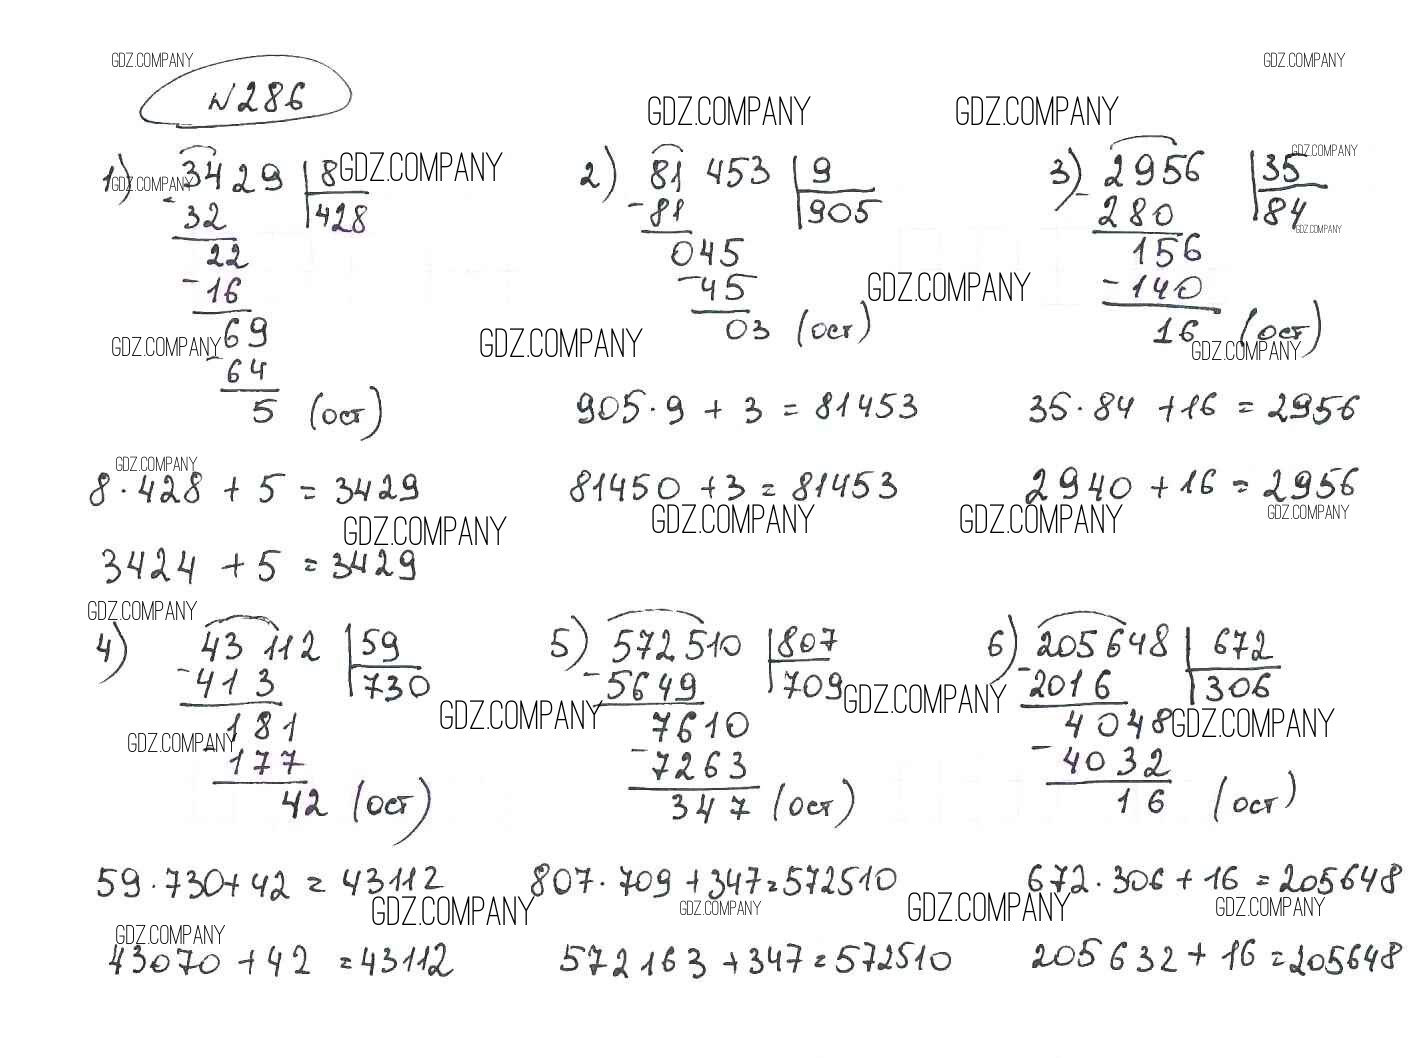 GDZ.COMPANY GDZ.COMPANY
N286
GDZ.COMPANY GDZ.COMPANY
1) 3429 | 8 GDZ.COMPANY 2) 81 453 | 9 3) 2956 | 35 GDZ.COMPANY
GDZ.COMPANY
- 32 428 - 81 905 - 280 84
GDZ.COMPANY
22 045 156
- 16 - 45 GDZ.COMPANY - 140
69 03 (ост) 16 (ост)
GDZ.COMPANY GDZ.COMPANY GDZ.COMPANY
- 64
5 (ост) 905 · 9 + 3 = 81453 35 · 84 + 16 = 2956
GDZ.COMPANY
8 · 428 + 5 = 3429 81450 + 3 = 81453 2940 + 16 = 2956
GDZ.COMPANY GDZ.COMPANY GDZ.COMPANY GDZ.COMPANY
3424 + 5 = 3429
GDZ.COMPANY
4) 43 112 | 59 5) 572510 | 807 6) 205648 | 672
- 413 730 - 5649 709 - 2016 306
GDZ.COMPANY GDZ.COMPANY GDZ.COMPANY
181 7610 4048
GDZ.COMPANY
- 177 - 7263 - 4032
42 (ост) 347 (ост) 16 (ост)
59 · 730 + 42 = 43112 807 · 709 + 347 = 572510 672 · 306 + 16 = 205648
GDZ.COMPANY GDZ.COMPANY GDZ.COMPANY GDZ.COMPANY
GDZ.COMPANY
43070 + 42 = 43112 572163 + 347 = 572510 205632 + 16 = 205648